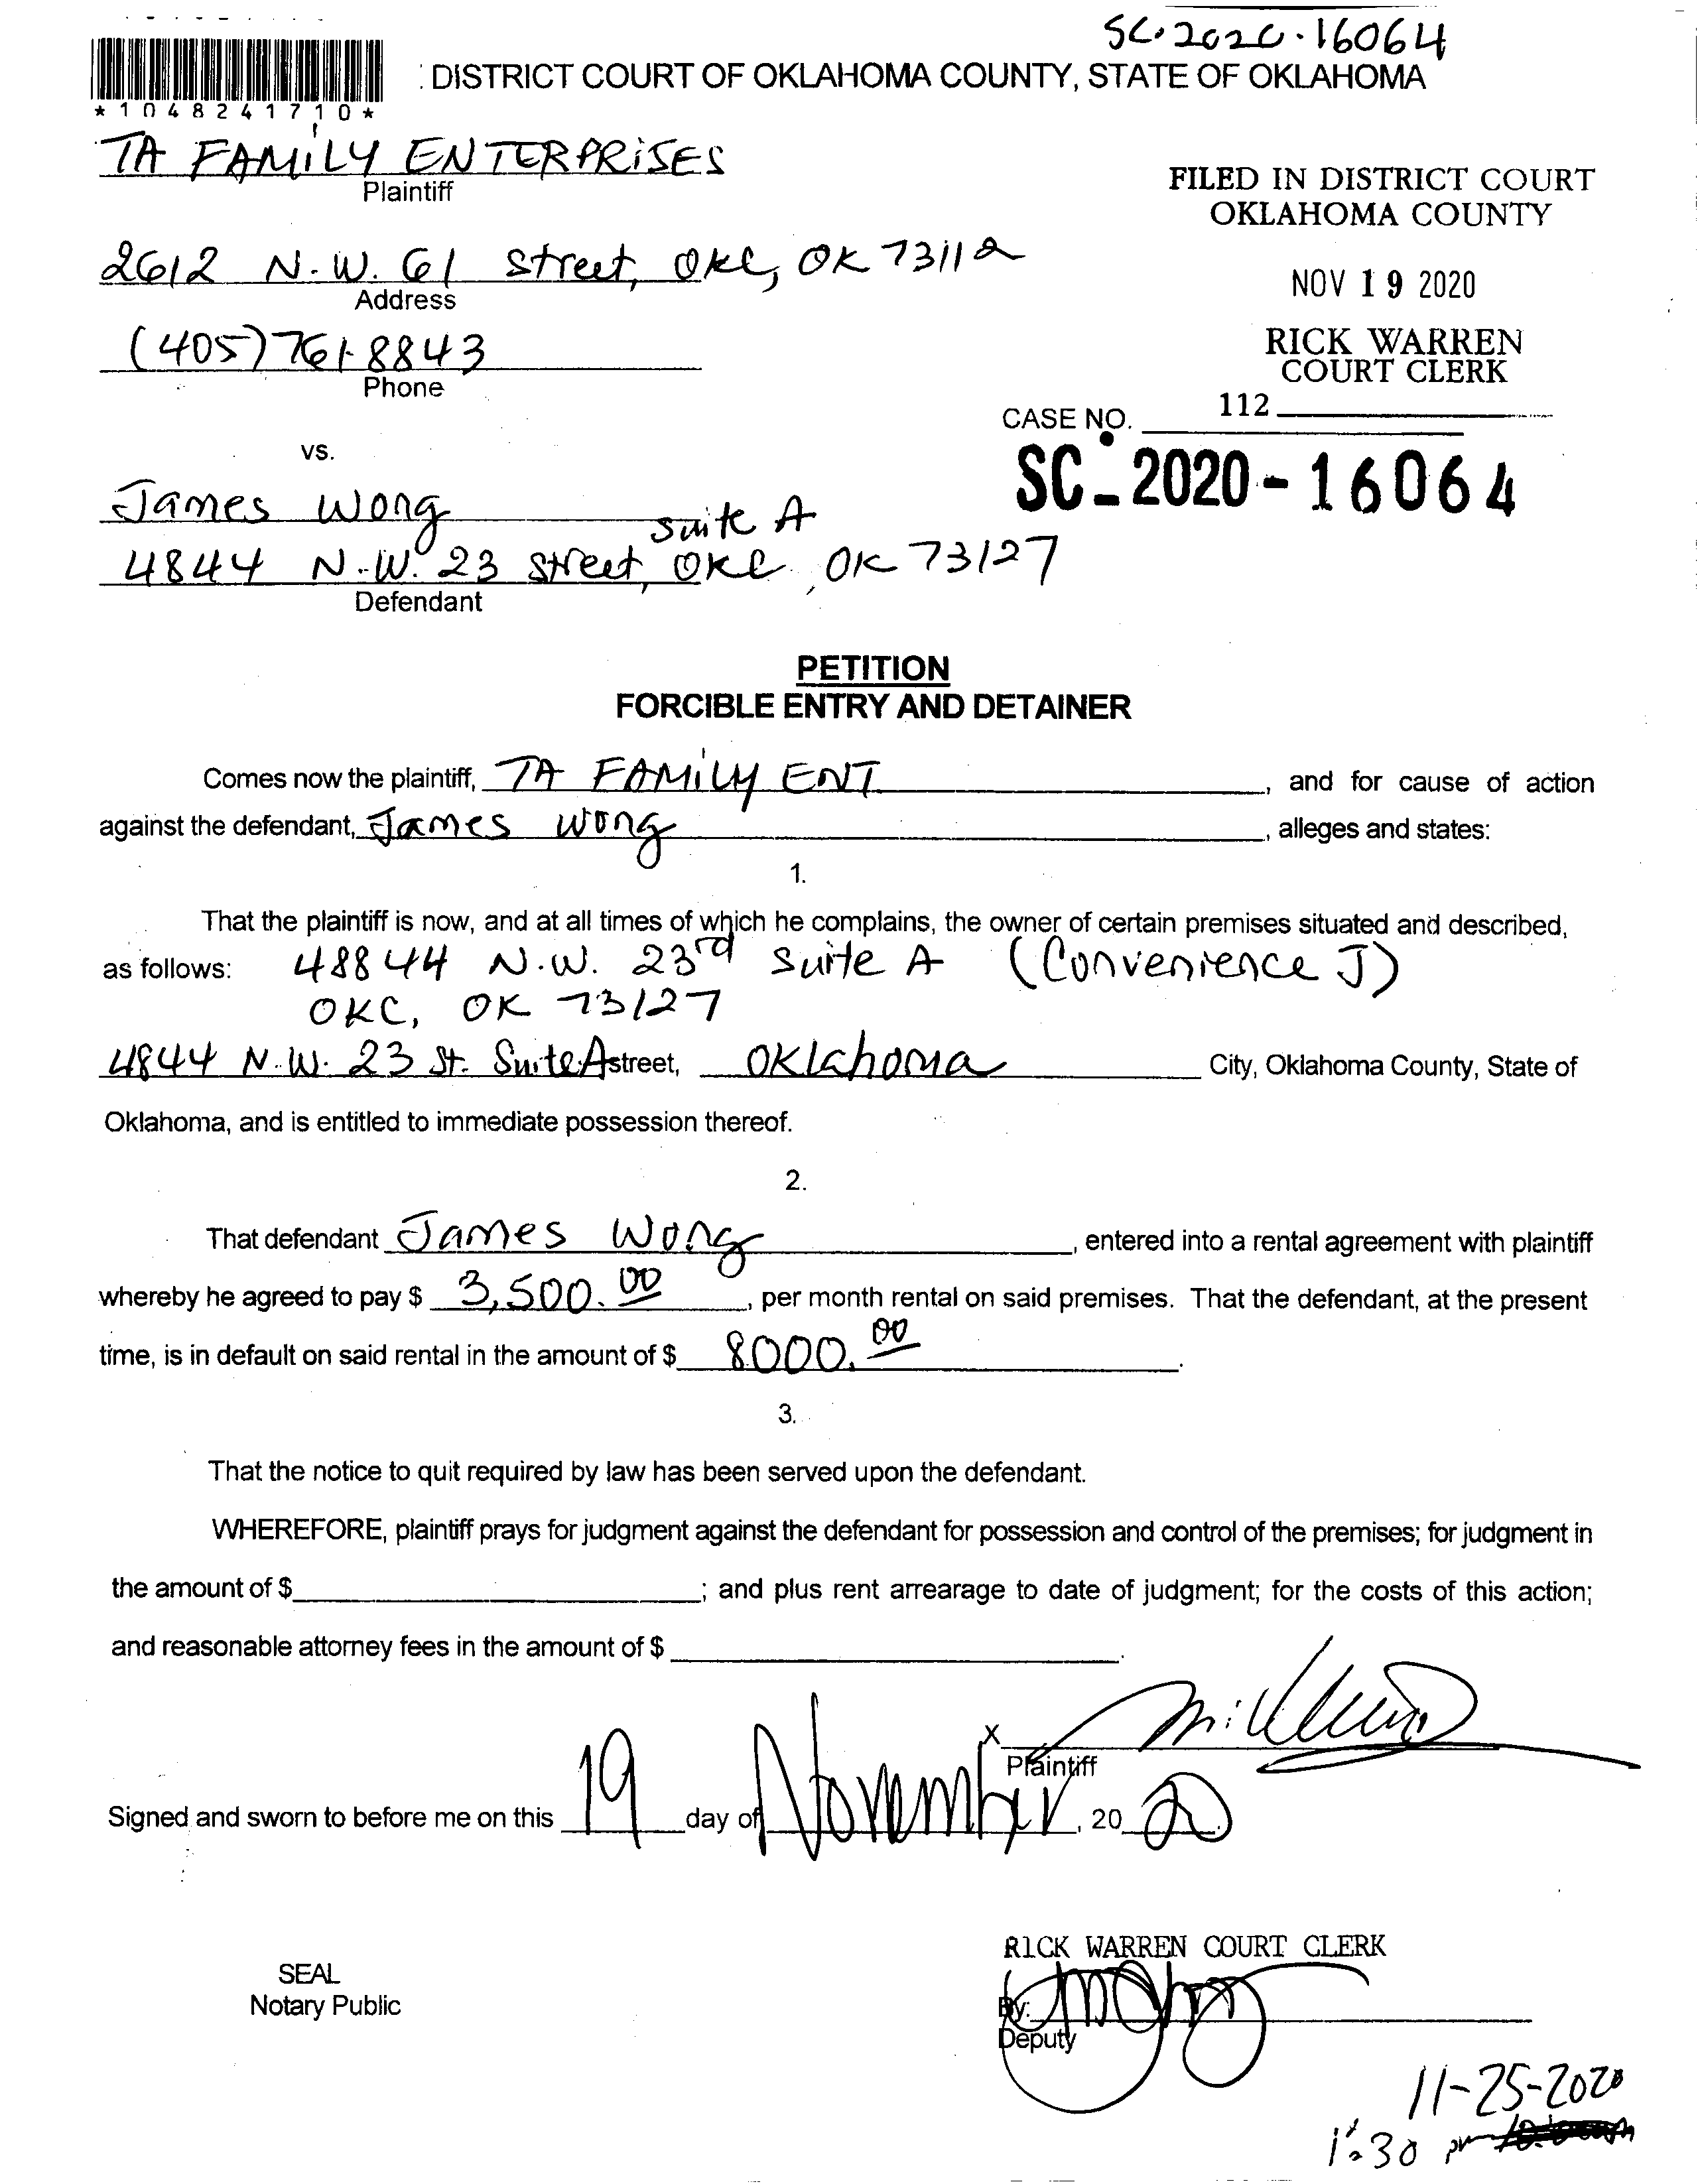 SC-2020-16064
: DISTRICT COURT OF OKLAHOMA COUNTY, STATE OF OKLAHOMA
*1048241710*
TA FAMILY ENTERPRISES
Plaintiff
FILED IN DISTRICT COURT
OKLAHOMA COUNTY
2612 N.W. 61 Street, OKC, OK 73112
Address
NOV 19 2020
(405) 761-8843
Phone
RICK WARREN
COURT CLERK
112
CASE NO.
SC-2020-16064
vs.
James Wong
Suite A
4844 N.W. 23 Street, OKC, OK 73127
Defendant
PETITION
FORCIBLE ENTRY AND DETAINER
Comes now the plaintiff, TA FAMILY ENT, and for cause of action
against the defendant, James Wong, alleges and states:
1.
That the plaintiff is now, and at all times of which he complains, the owner of certain premises situated and described,
as follows: 48844 N.W. 23rd Suite A (Convenience J)
OKC, OK 73127
4844 N.W. 23 St. Suite A street, Oklahoma City, Oklahoma County, State of
Oklahoma, and is entitled to immediate possession thereof.
2.
That defendant James Wong, entered into a rental agreement with plaintiff
whereby he agreed to pay $ 3,500.00, per month rental on said premises. That the defendant, at the present
time, is in default on said rental in the amount of $ 8000.00.
3.
That the notice to quit required by law has been served upon the defendant.
WHEREFORE, plaintiff prays for judgment against the defendant for possession and control of the premises; for judgment in
the amount of $ ; and plus rent arrearage to date of judgment; for the costs of this action;
and reasonable attorney fees in the amount of $ .
X
Plaintiff
Signed and sworn to before me on this 19 day of November, 20 20.
RICK WARREN COURT CLERK
SEAL
Notary Public
By:
Deputy
11-25-2020
1:30 pm